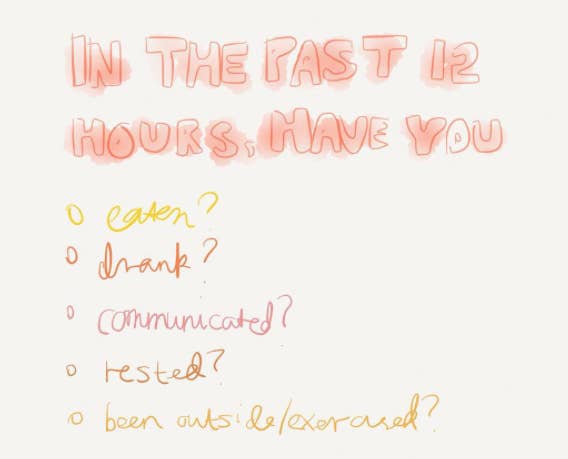 IN THE PAST 12
HOURS, HAVE YOU
eaten?
drank?
communicated?
rested?
been outside/exercised?